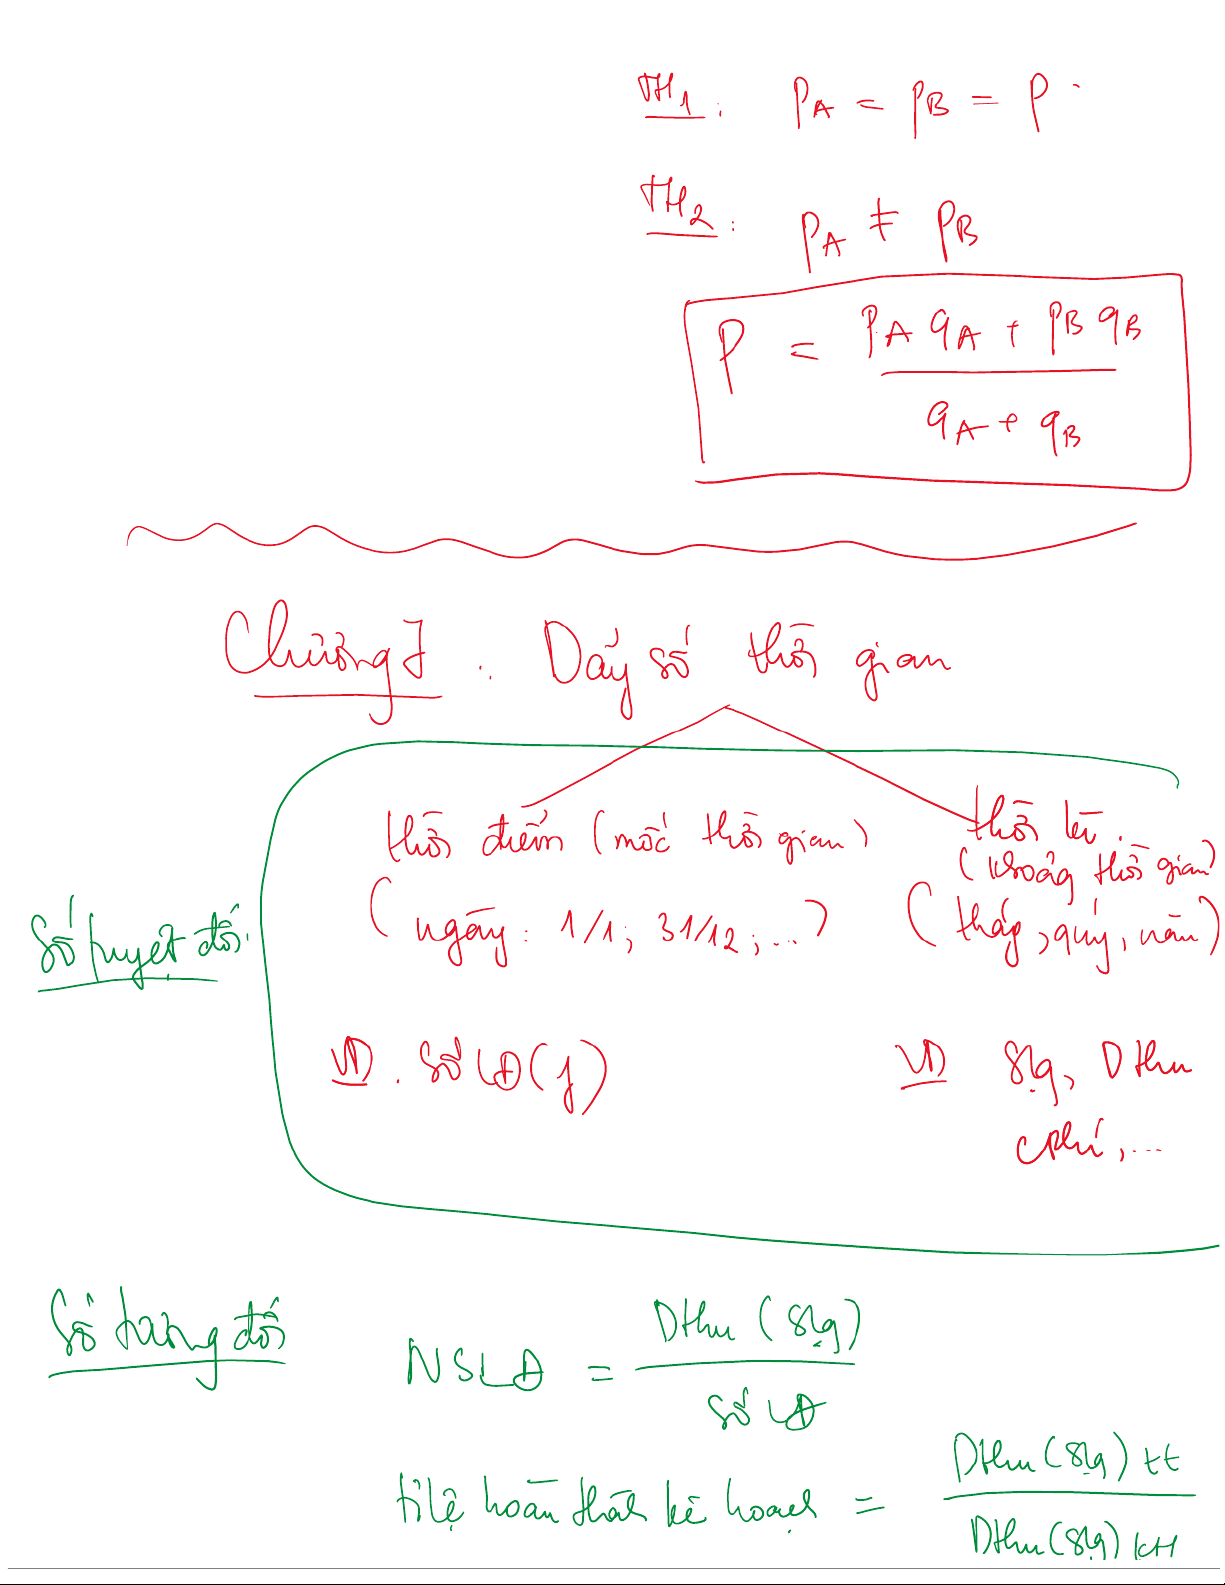 TH1: PA = PB = P.
TH2: PA ≠ PB
P = (PA qA + PB qB) / (qA + qB)
Chương 7: Dãy số thời gian
thời điểm (mốc thời gian)
(ngày: 1/1; 31/12; ...)
thời kì.
(khoảng thời gian)
(tháng, quý, năm)
Số tuyệt đối.
VD. Số LĐ
VD Slg, Dthu
cphí, ...
Số tương đối
NSLĐ = Dthu (Slg) / Số LĐ
tỉ lệ hoàn thành kế hoạch = Dthu (Slg) tt / Dthu (Slg) KH